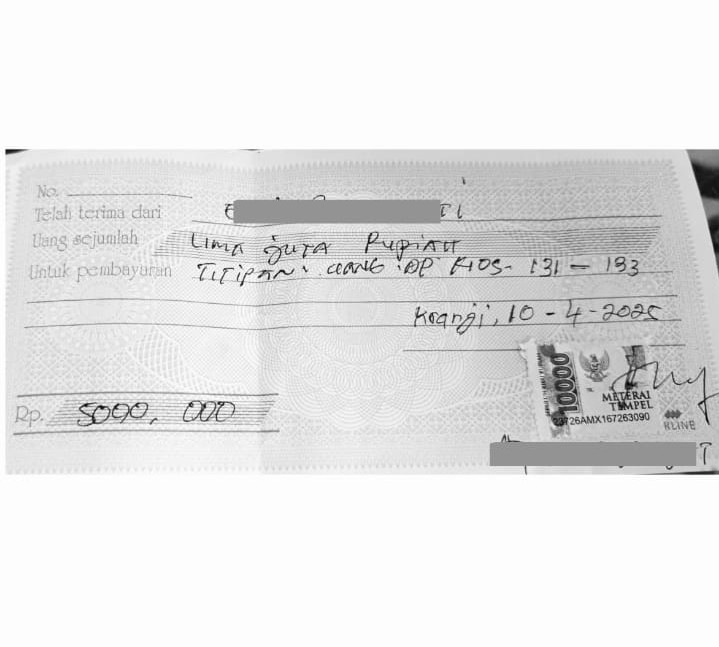 No.
Telah terima dari
Uang sejumlah Lima Juta Rupiah
Untuk pembayaran TITIPAN. UANG .DP KIOS- 131 - 133
Kranji, 10-4-2025
10000
METERAI
TEMPEL
23726AMX167263090
KLINE
Rp. 5000, 000